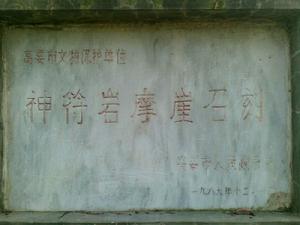 高安市文物保护单位
神符岩摩崖石刻
高安市人民政府
一九八九年十二